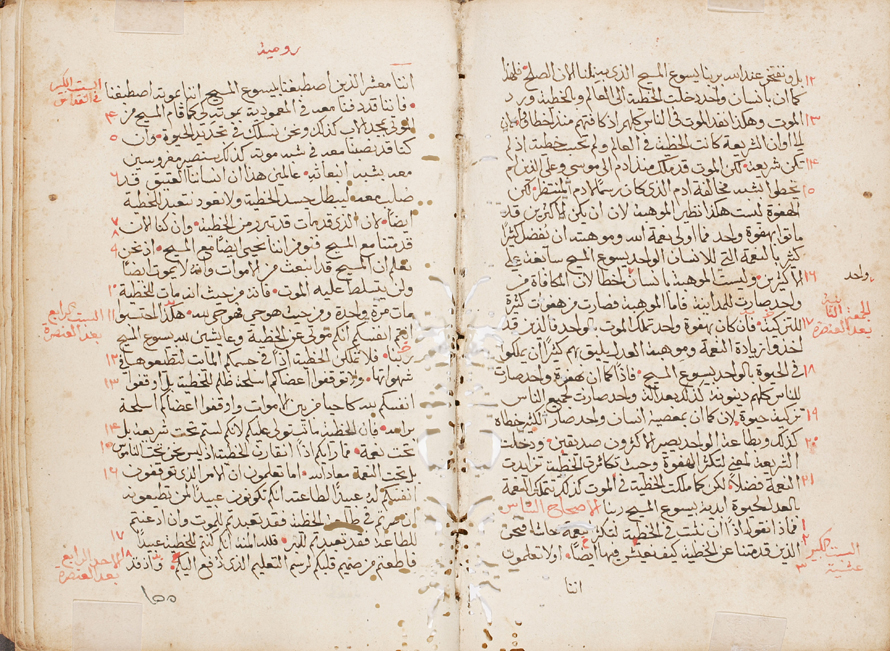 بل ونفتخر عند الله بربنا يسوع المسيح الذي به نلنا الان الصلح فلهذا ١٢
كما ان بانسان واحد دخلت الخطية الى العالم وبالخطية ورد
الموت وهكذا نفذ الموت في الناس كلهم اذ كافتهم منذ اخطا في ١٣
اوان الشريعة كانت الخطية في العالم ولم تحسب خطية اذ لم
تكن شريعة لكن الموت قد ملك منذ ادم الى موسى وعلى الذين لم ١٤
يخطوا بشبه مخالفة ادم الذي كان رسما لادم المنتظر لكن ١٥
الهفوة ليست هكذا نظير الموهبة لان ان يكن الاكثرين قد
ماتوا بهفوة واحد فما اولى نعمة الله وموهبته ان تفضل كثيرا
كثير بالنعمة التي للانسان الواحد يسوع المسيح سابغة على
الاكثرين وليست الموهبة بانسان اخطا لان المكافاة من ١٦
واحد
واحد صارت للمداينة فاما الموهبة فصارت من هفوات كثيرة
للتزكية فان كان بهفوة واحد تملك الموت بالواحد فالذين قد ١٧
الجمعة الثانية
بعد العنصرة
اخذوا زيادة النعمة وموهبة العدل يليق بهم كثيرا ان يملكوا
في الحيوة بالواحد يسوع المسيح فاذا كما ان بهفوة واحد صارت ١٨
للناس كلهم دينونة كذلك بعدالة واحد صارت لجميع الناس
تزكية حيوة لان كما ان بمعصية انسان واحد صار الكثير خطاه ١٩
كذلك وبطاعة الواحد يصير الاكثرون صديقين ودخلت ٢٠
الشريعة لمعنى لتكثر الهفوة وحيث تكاثرت الخطية تزايدت
النعمة فضلا لكي كما ملكت الخطية في الموت كذلك تملك النعمة ٢١
بالعدل لحيوة ابدية بيسوع المسيح ربنا الاصحاح السادس
فماذا نقول اذا انثبت في الخطية لتكثر النعمة حاشا فنحن
الذين قد متنا عن الخطية كيف نعيش فيها ايضا اولا تعلمون
السبت الكبير
عشية
اننا
رومية
اننا معشر الذين اصطبغنا بيسوع المسيح اننا بموته اصطبغنا
السبت الكبير
في القداس
فاننا قد دفنا معه في المعمودية بموته لكي كما قام المسيح من ٤
الموتى بمجد الاب كذلك ونحن نسلك في تجديد الحيوة وان ٥
كنا قد نصبنا معه في شبه موته كذلك سنصير مغروسين
معه بشبه انبعاثه عالمين هذا ان انساننا العتيق قد ٦
صلب معه ليبطل جسد الخطية ولا نعود نتعبد للخطية
ايضا لان الذي قد مات قد تبرر من الخطية وان كنا الان ٧ ٨
قد متنا مع المسيح فنومن اننا نحيى ايضا مع المسيح اذ نحن ٩
نعلم ان المسيح قد انبعث من الاموات وانه لا يموت ايضا
ولن يتسلط عليه الموت فانه من حيث انه مات للخطية ١٠
مات مرة واحدة ومن حيث هو حي فهو حي لله هكذا احتسبوا ١١
السبت الرابع
بعد العنصرة
انتم انفسكم انكم موتى عن الخطية وعايشين لله بيسوع المسيح
ربنا فلا تملكن الخطية اذا في جسدكم المائت لتطيعوها في ١٢
شهواتها ولا توقفوا اعضاكم اسلحة ظلم للخطية بل اوقفوا ١٣
انفسكم لله كاحيا من بين الاموات واوقفوا اعضاكم اسلحة
بر لله فان الخطية ما تستولي عليكم لانكم لستم تحت شريعة بل ١٤
تحت نعمة فما رايكم اذا انقارف الخطية اذ ليس نحن تحت الناموس ١٥
بل تحت النعمة معاذ الله اما تعلمون ان الامر الذي توقفون ١٦
انفسكم له عبيدا للطاعة انكم تكونون عبيدا لمن تطيعونه
الخطية فقد تعبدتم للموت وان اذعنتم
للطاعة فقد تعبدتم للبر فلله المنة انكم كنتم للخطية عبيدا ١٧
فاطعتم من صميم قلبكم لرسم التعليم الذي دفع اليكم واذ قد ١٨
الاحد الرابع
بعد العنصرة